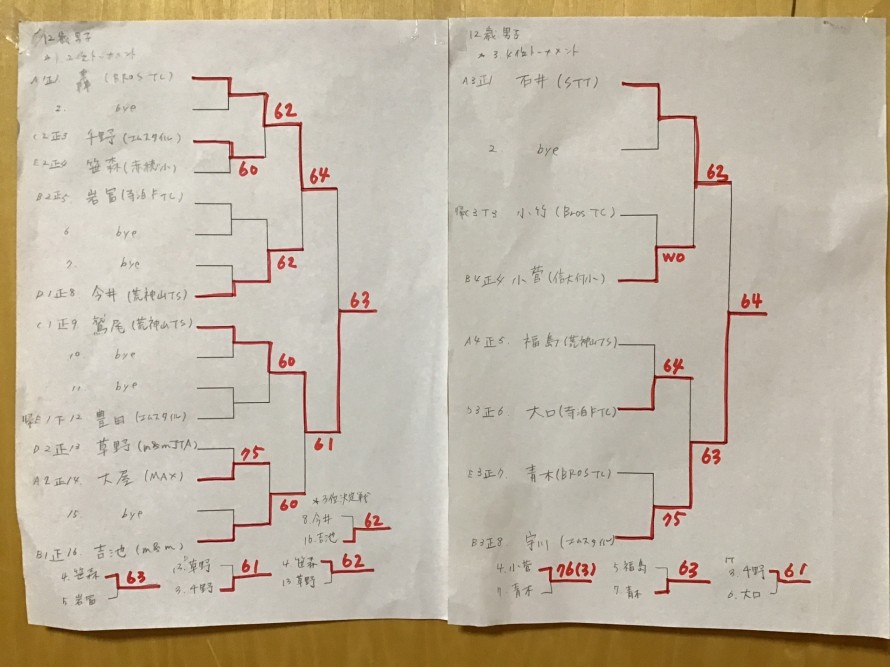 12歳男子
1.2位トーナメント
A1正1 轟 (BROS TC)
2. bye
62
C2正3 千野 (エムスタイル)
E2正4 笹森 (赤穂小)
60
64
B2正5. 岩冨 (寺泊FTC)
6 bye
7. bye
62
D1正8. 今井 (荒神山TS)
63
C1正9. 鷲尾 (荒神山TS)
10 bye
60
11 bye
12 豊田 (エムスタイル)
61
D2正13 草野 (m&m JTA)
75
A2正14. 大屋 (MAX)
60
15. bye
B1正16. 吉池 (m&m)
*3位決定戦
8. 今井
16. 吉池
62
4. 笹森
5. 岩冨
63
12. 草野
3. 千野
61
4. 笹森
13 草野
62
12歳男子
3.4位トーナメント
A3正1 石井 (STT)
2. bye
62
3 小竹 (BROS TC)
WO
B4正4 小菅 (信大付小)
64
A4正5. 福島 (荒神山TS)
64
正6. 大口 (寺泊FTC)
63
E3正7. 青木 (BROS TC)
75
B3正8. 宇川 (エムスタイル)
4. 小菅
7. 青木
76(3)
5. 福島
7. 青木
63
3. 千野
6. 大口
61